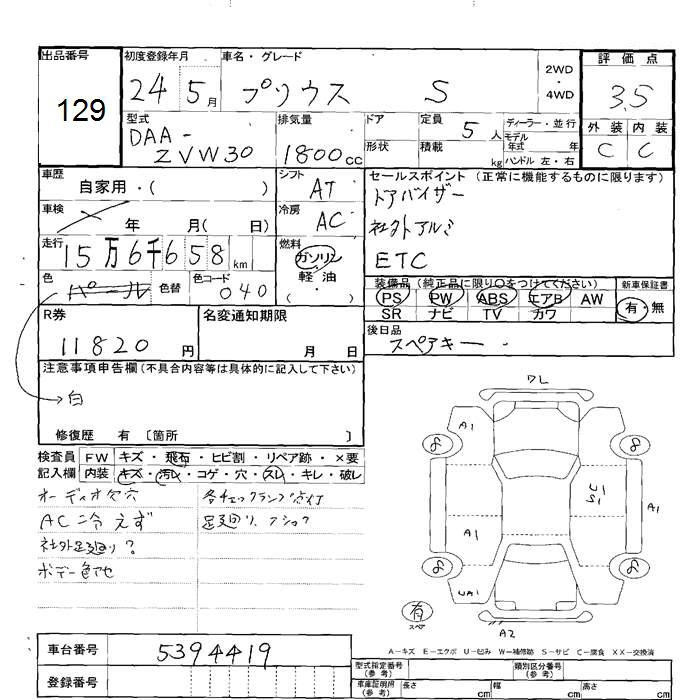 出品番号
129
初度登録年月
24 5月
車名・グレード
プリウス S
2WD・4WD
評価点
3.5
外装 内装
C C
型式
DAA-
ZVW30
排気量
1800cc
ドア
形状
定員 5人
積載 kg
ディーラー・並行
モデル年式 年
ハンドル 左・右
車歴
自家用・( )
車検
年 月( 日)
走行
15万6千658km
色
パール
色替
色コード
040
シフト
AT
冷房
AC
燃料
ガソリン
軽・油
( )
セールスポイント (正常に機能するものに限ります)
ドアバイザー
社外アルミ
ETC
装備品 (純正品に限り〇をつけてください)
PS PW ABS エアB AW
SR ナビ TV カワ
新車保証書
有・無
後日品
スペアキー
R券
11820円
名変通知期限
月 日
注意事項申告欄 (不具合内容等は具体的に記入して下さい)
白
修復歴 有 〔箇所 〕
検査員記入欄
FW キズ・飛石・ヒビ割・リペア跡・×要
内装 キズ・汚レ・コゲ・穴・スレ・キレ・破レ
オーディオ欠穴
AC冷えず
社外足廻り?
ボデー色アセ
各チェックランプ点灯
足廻り、ショック
ワレ
A1
8
8
U1
S1
A1
A1
A1
8
8
UA1
A2
有
スペア
A-キズ E-エクボ U-凹み W-補修跡 S-サビ C-腐食 XX-交換済
車台番号
5394419
登録番号
型式指定番号
(参考)
類別区分番号
(参考)
車庫証明用
(参考)
長さ cm
幅 cm
高さ cm